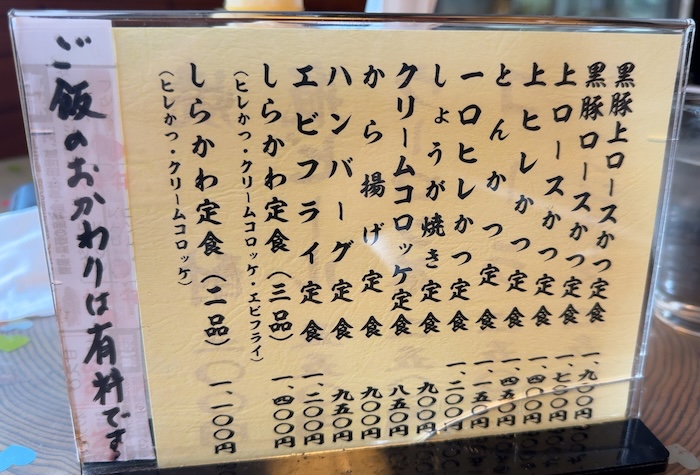 黒豚上ロースかつ定食 一、九〇〇円
黒豚ロースかつ定食 一、七〇〇円
上ロースかつ定食 一、四〇〇円
上ヒレかつ定食 一、四五〇円
とんかつ定食 一、一五〇円
一口ヒレかつ定食 一、二〇〇円
しょうが焼き定食 九〇〇円
クリームコロッケ定食 八五〇円
から揚げ定食 九〇〇円
ハンバーグ定食 九五〇円
エビフライ定食 一、二〇〇円
しらかわ定食（三品） 一、四〇〇円
（ヒレかつ・クリームコロッケ・エビフライ）
しらかわ定食（二品） 一、一〇〇円
（ヒレかつ・クリームコロッケ）
ご飯のおかわりは有料です。